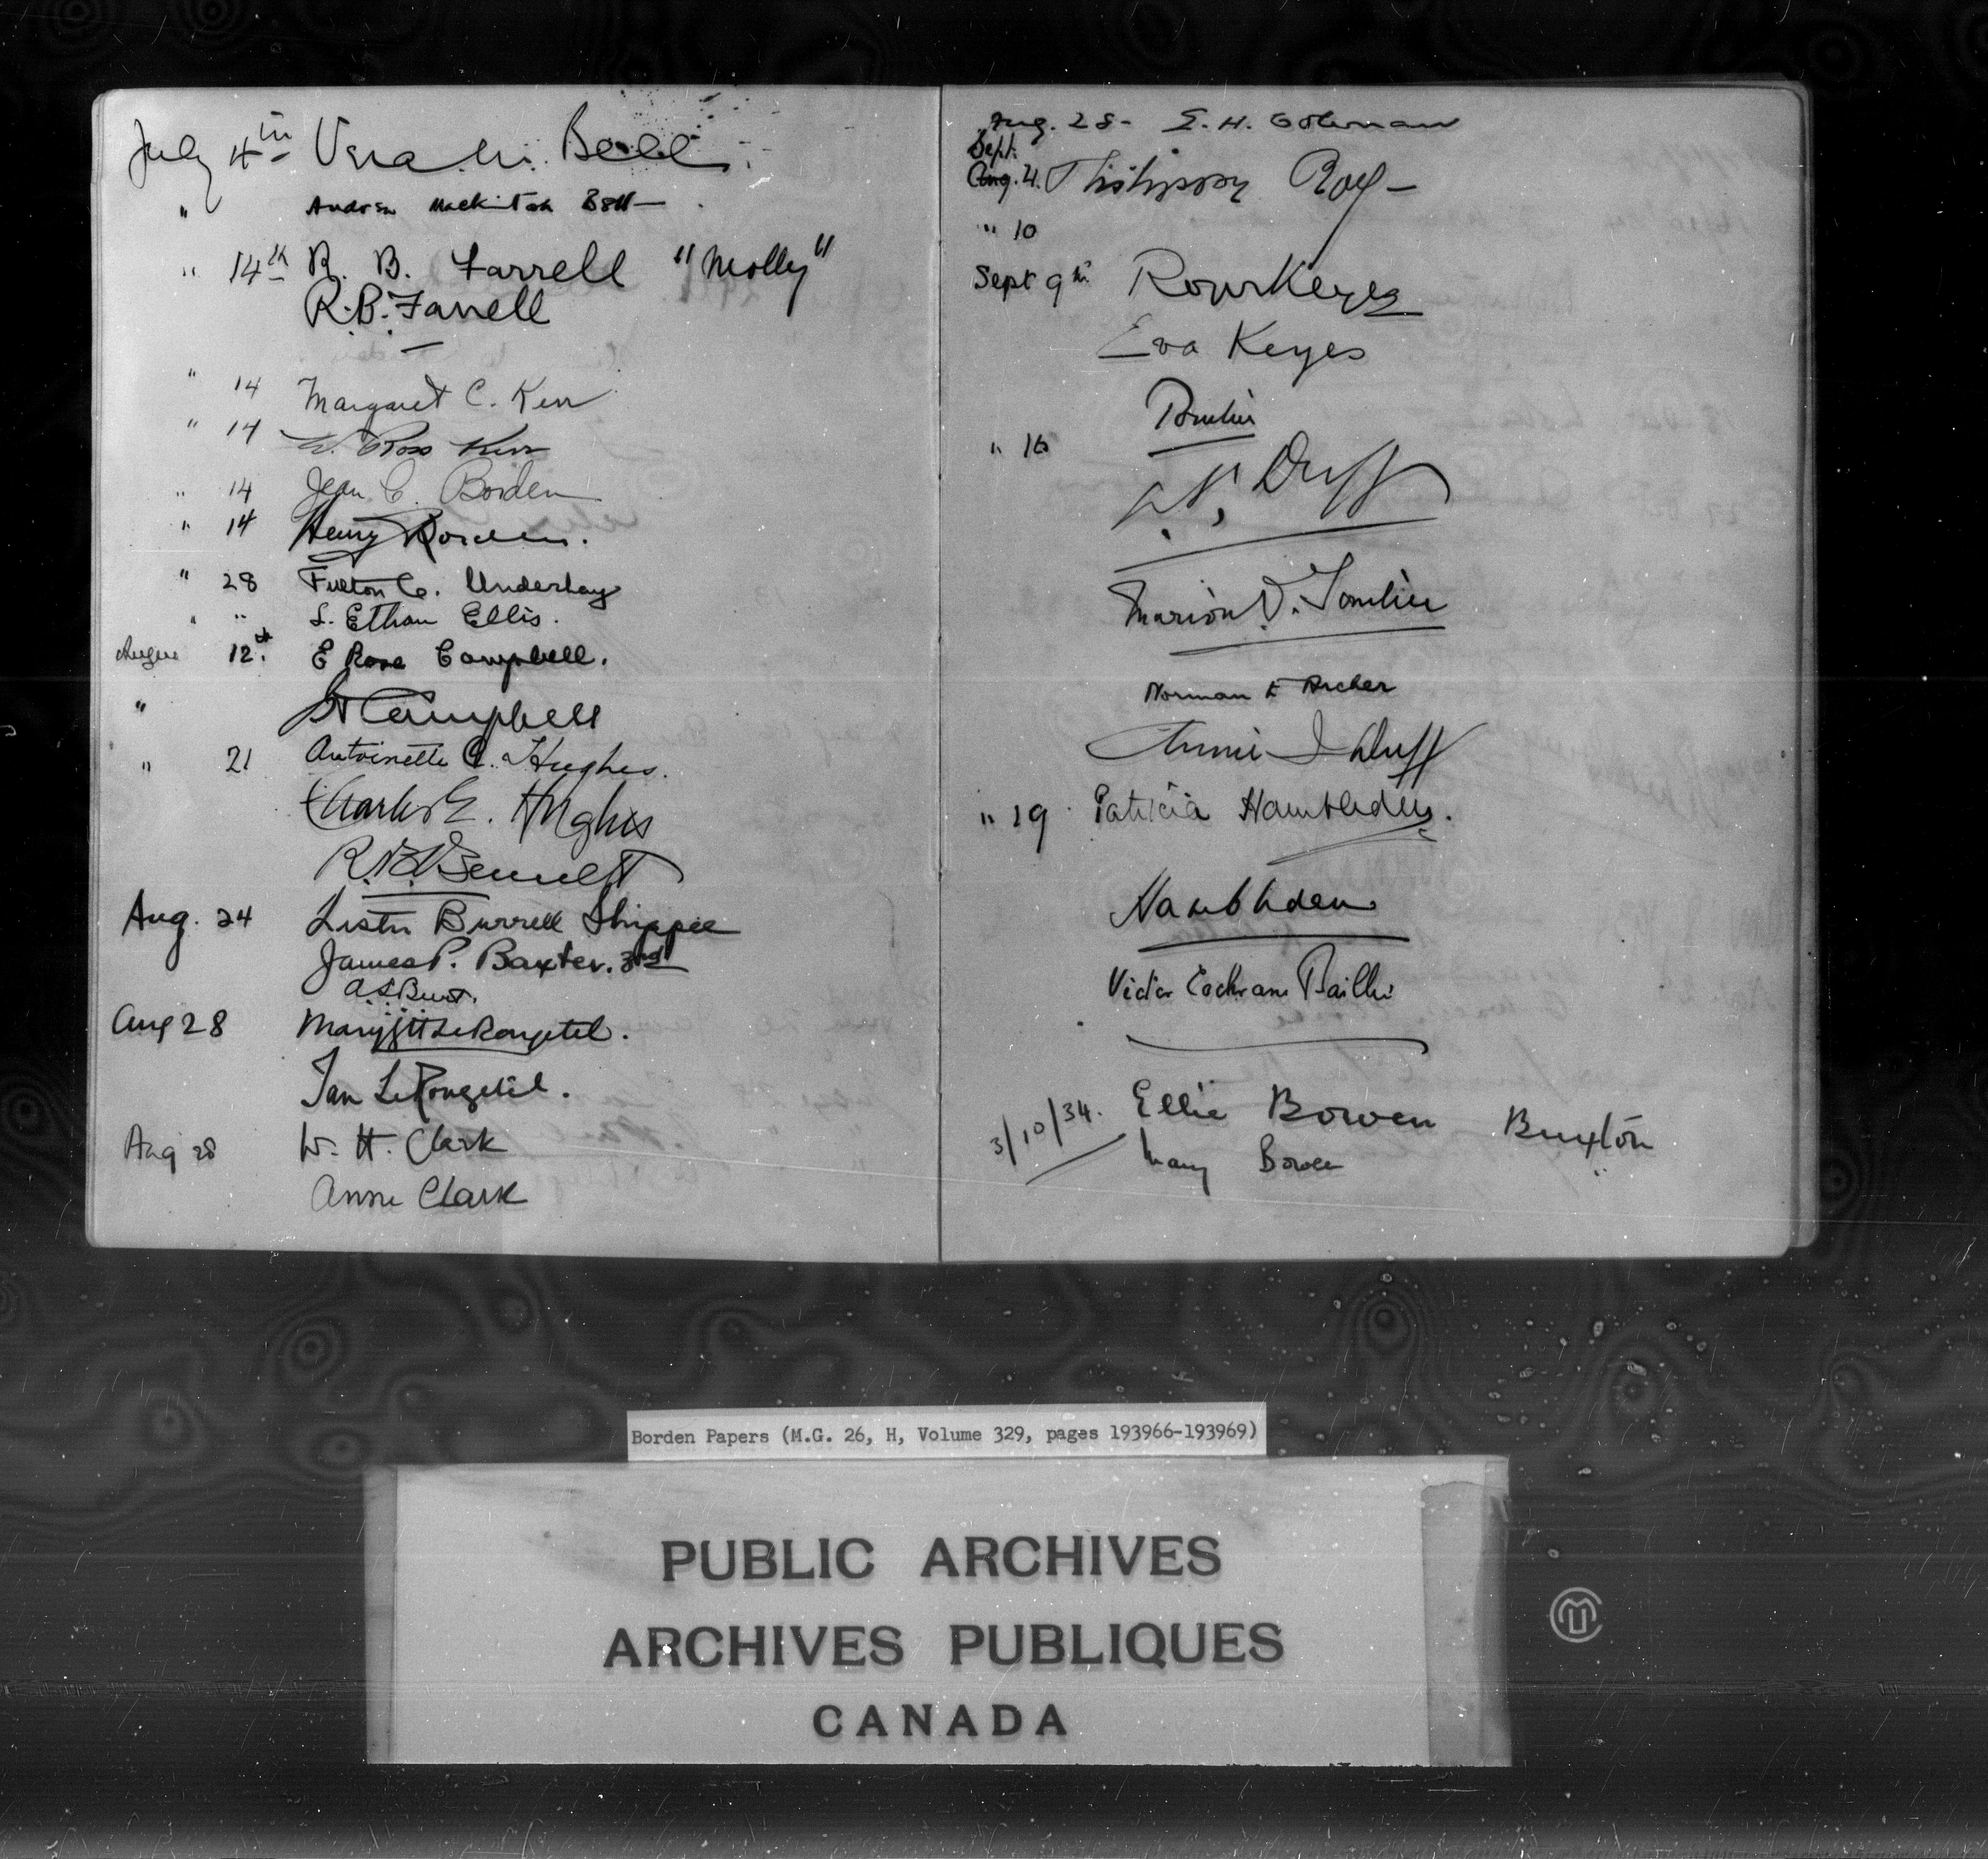 July 4th Vera M. Bell
" Andrew Mackintosh Bell
" 14th R. B. Farrell "Molly"
R. B. Farrell
" 14 Margaret C. Kerr
" 14 W. Ross Kerr
" 14 Jean C. Borden
" 14 Henry Borden.
" 28 Fulton C. Underhay
" " L. Ethan Ellis.
August 12th E Rose Campbell.
" Campbell
" 21 Antoinette C. Hughes.
Charles E. Hughes
R. B. Bennett
Aug. 24 Lester Burrell Shippee
James P. Baxter. 3rd
A L Burt.
Aug 28 Mary Le Rougetel.
Ian Le Rougetel.
Aug 28 W. H. Clark
Anne Clark
Aug. 28 - E. H. Coleman
Sept.
Aug. 4. Philippe Roy -
" 10
Sept 9th Roger Keyes
Eva Keyes
" 16
Duff
Marion
Norman F Archer
Annie Duff
" 19 Patricia Hambleden.
Hambleden
Victor Cochrane Baillie
3/10/34. Ellie Bowen Buxton
Mary Bowen
Borden Papers (M.G. 26, H, Volume 329, pages 193966-193969)
PUBLIC ARCHIVES
ARCHIVES PUBLIQUES
CANADA